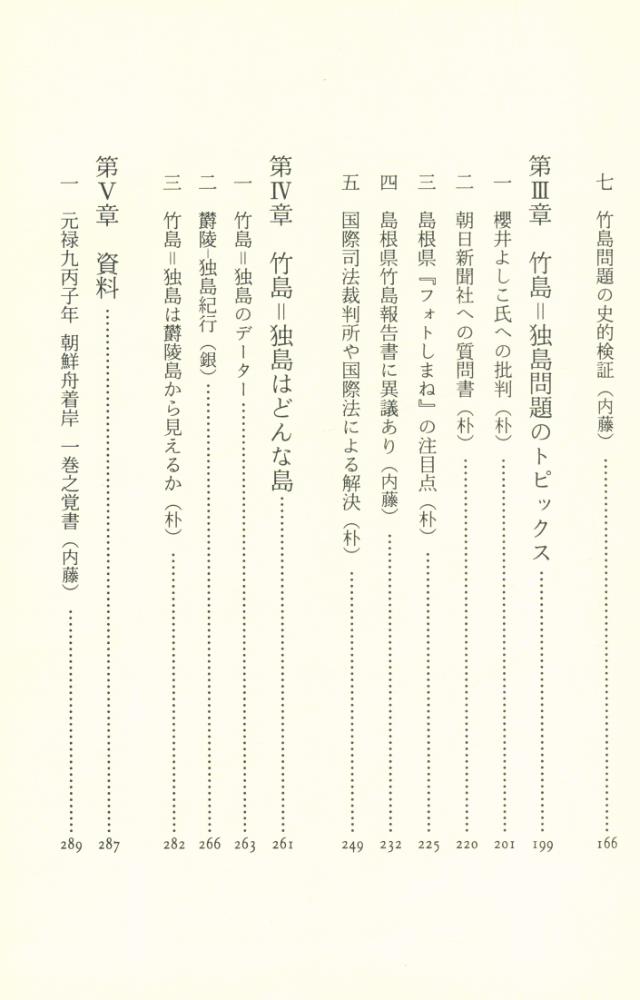 七 竹島問題の史的検証(内藤)……166
第Ⅲ章 竹島=独島問題のトピックス……199
一 櫻井よしこ氏への批判(朴)……201
二 朝日新聞社への質問書(朴)……220
三 島根県『フォトしまね』の注目点(朴)……225
四 島根県竹島報告書に異議あり(内藤)……232
五 国際司法裁判所や国際法による解決(朴)……249
第Ⅳ章 竹島=独島はどんな島……261
一 竹島=独島のデーター……263
二 欝陵−独島紀行(銀)……266
三 竹島=独島は欝陵島から見えるか(朴)……282
第Ⅴ章 資料……287
一 元禄九丙子年 朝鮮舟着岸 一巻之覚書(内藤)……289